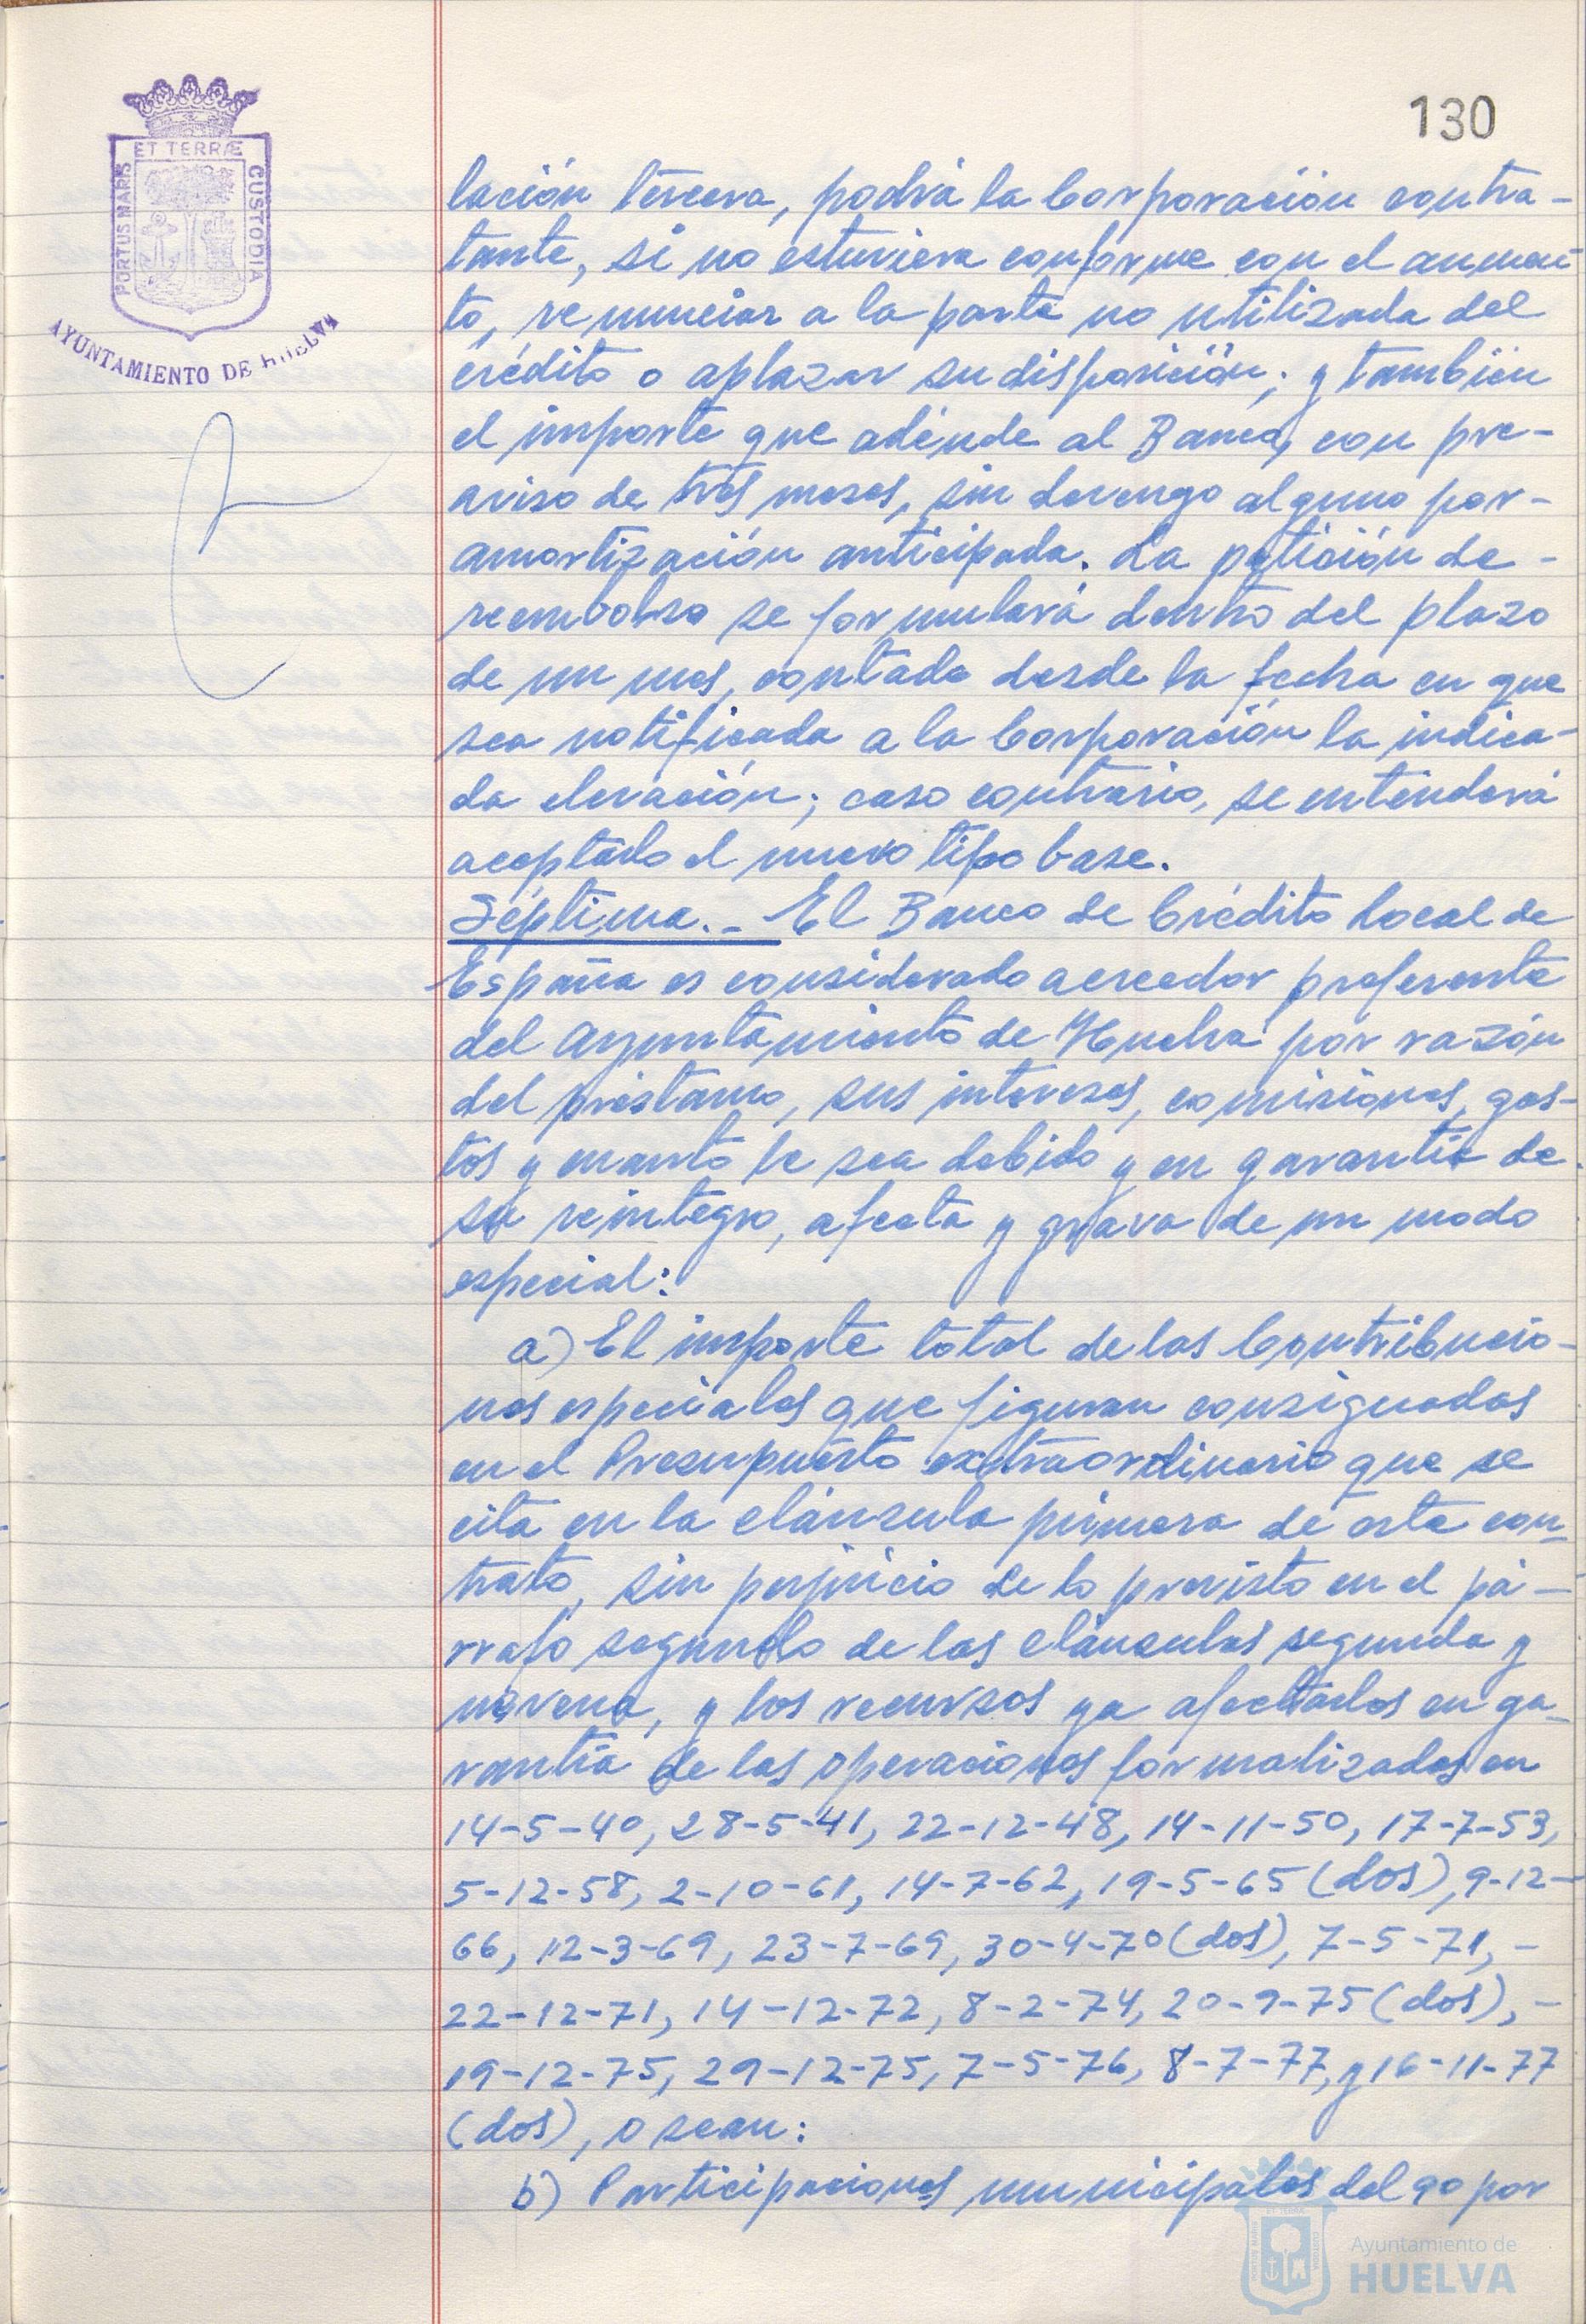 130
ET TERRÆ
PORTUS MARIS
CUSTODIA
AYUNTAMIENTO DE HUELVA
lación tercera, podrá la Corporación contra-
tante, si no estuviera conforme con el aumen-
to, renunciar a la parte no utilizada del
crédito o aplazar su disposición; y también
el importe que adeude al Banco, con pre-
aviso de tres meses, sin devengo alguno por-
amortización anticipada. La petición de-
reembolso se formulará dentro del plazo
de un mes, contado desde la fecha en que
sea notificada a la Corporación la indica-
da elevación; caso contrario, se entenderá
aceptado el nuevo tipo base.
Séptima.- El Banco de Crédito Local de
España es considerado acreedor preferente
del Ayuntamiento de Huelva por razón
del préstamo, sus intereses, comisiones, gas-
tos y cuanto le sea debido y en garantía de-
su reintegro, afecta y grava de un modo
especial:
a) El importe total de las Contribucio-
nes especiales que figuran consignadas
en el Presupuesto extraordinario que se
cita en la cláusula primera de este con-
trato, sin perjuicio de lo previsto en el pá-
rrafo segundo de las cláusulas segunda y
novena, y los recursos ya afectados en ga-
rantía de las operaciones formalizadas en
14-5-40, 28-5-41, 22-12-48, 14-11-50, 17-7-53,
5-12-58, 2-10-61, 14-7-62, 19-5-65 (dos), 9-12-
66, 12-3-69, 23-7-69, 30-4-70 (dos), 7-5-71, -
22-12-71, 14-12-72, 8-2-74, 20-9-75 (dos), -
19-12-75, 29-12-75, 7-5-76, 8-7-77, y 16-11-77
(dos), o sean:
b) Participaciones municipales del 90 por
Ayuntamiento de
HUELVA